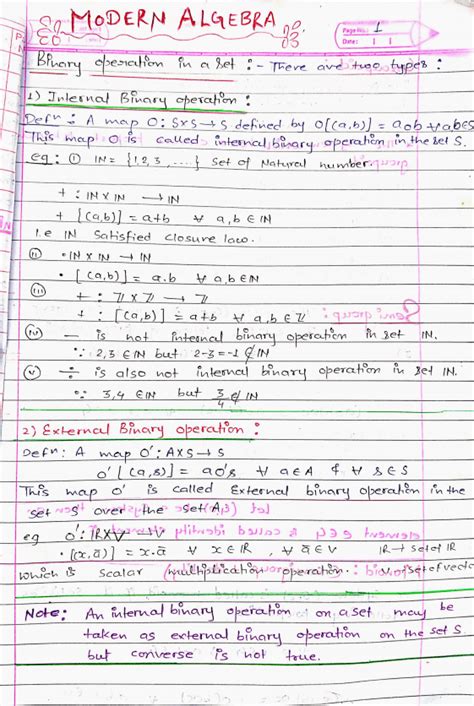 MODERN ALGEBRA
Page No.: 1
Date:
Binary operation in a set :- There are two types :
1) Internal Binary operation :
Defn : A map O: S×S → S defined by O[(a,b)] = aob ∀ a,b∈S
This map O is called internal binary operation in the set S.
eg : ① IN = {1,2,3, ....} set of Natural number.
+ : IN × IN → IN
+ [(a,b)] = a+b ∀ a,b ∈ IN
I.e IN satisfied closure law.
(ii) • IN × IN → IN
• [(a,b)] = a.b ∀ a,b ∈ IN
(iii) + : ℤ × ℤ → ℤ
+ : [(a,b)] = a+b ∀ a,b ∈ ℤ
(iv) — is not internal binary operation in set IN.
∵ 2,3 ∈ IN but 2-3 = -1 ∉ IN
(v) ÷ is also not internal binary operation in set IN.
∵ 3,4 ∈ IN but 3/4 ∉ IN
2) External Binary operation :
Defn: A map O': A×S → S
O' [(a,s)] = ao's ∀ a∈A & ∀ s∈S
This map O' is called External binary operation in the
set S over the set (A)
eg O': IR×V → V
• [(x,ā)] = x.ā ∀ x ∈ IR , ∀ ā ∈ V IR → set of IR
which is scalar multiplication operation. V → set of vector
Note: An internal binary operation o on a set may be
taken as external binary operation on the set S
but converse is not true.